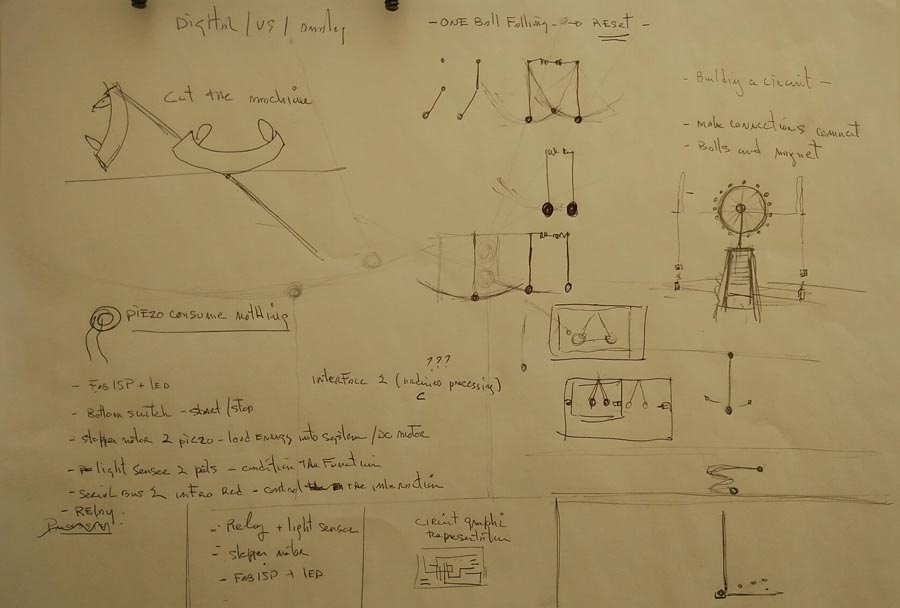 Digital / vs / analog
- ONE Ball Falling - → RESET -
Cut the machine
- Building a circuit -
- make connections connect
- Balls and magnet
PiEZO consume nothing
- FabISP + lED
- Bottom switch - start / stop
- stepper motor 2 piezo - load ENERGY into system / DC motor
- light sensor 2 pots - condition The Function
- Serial Bus & infra Red - control the interaction
- RElay
interface 2 (arduino processing)
???
C
- Relay + light sensor
- stepper motor
- FabISP + lED
circuit graphic
Representation